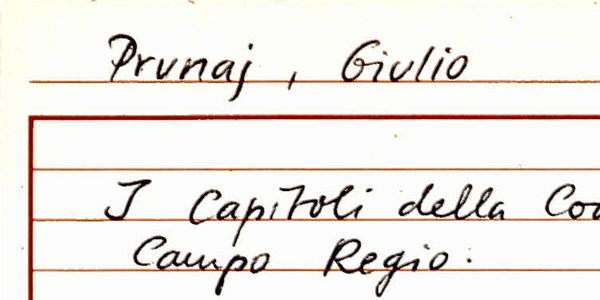 Prunaj, Giulio
I Capitoli della
Campo Regio: